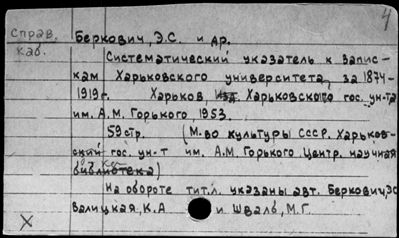 4
Справ. Беркович, Э.С. и др.
каб. Систематический указатель к запис-
кам Харьковского университета, за 1874-
1919г. Харьков, Изд. Харьковского гос. ун-та
им. А.М. Горького, 1953.
59 стр. (М-во культуры СССР. Харьков-
ский гос. ун-т им. А.М. Горького Центр. научная
библиотека)
На обороте тит.л. указаны авт. Беркович, ЭС
Валицкая, К.А и Шваль, М.Г.
X